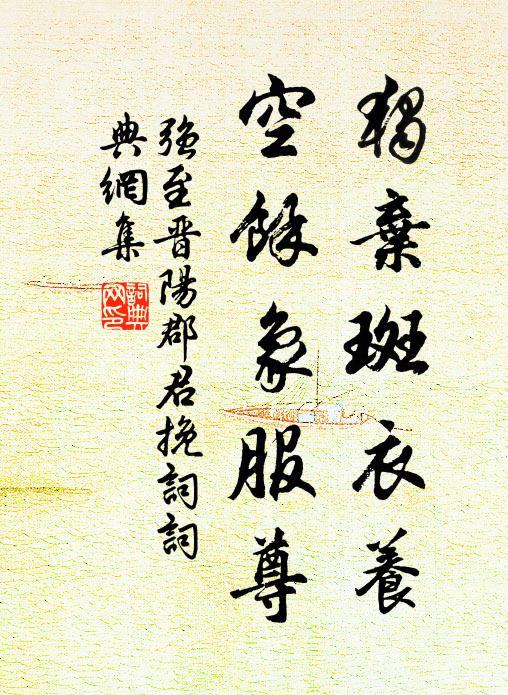 獨棄斑衣養
空餘象服尊
強至晉陽郡君挽詞詞
典網集
詞典
网印